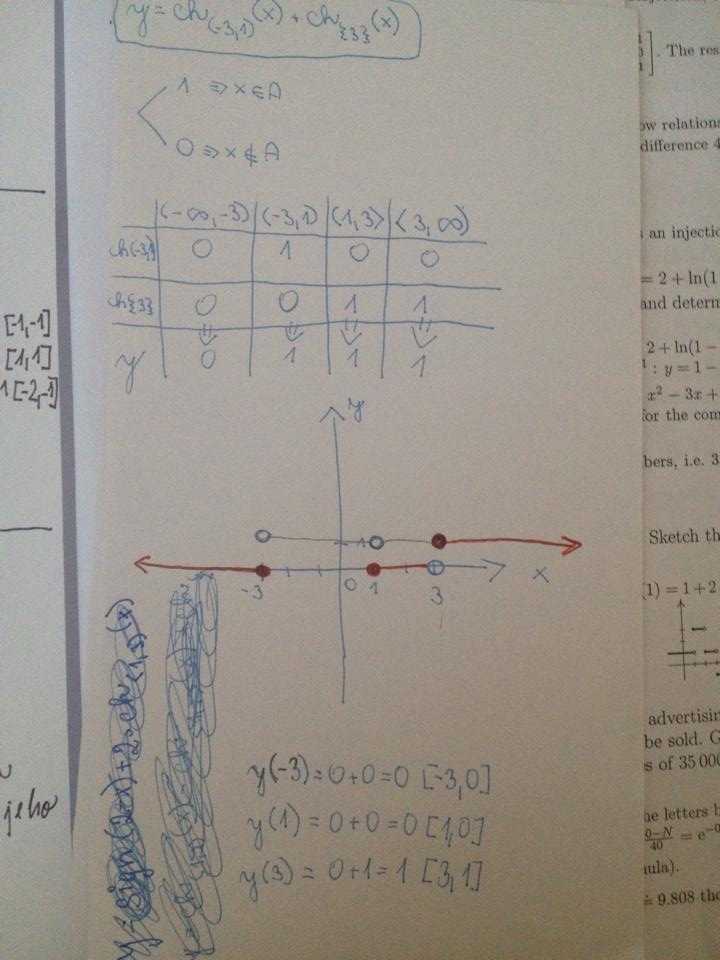 y = ch(-3,1)(x) + ch{3}(x)
1 ⇒ x ∈ A
0 ⇒ x ∉ A
(-∞,-3) (-3,1) (1,3) (3,∞)
ch(-3,1) 0 1 0 0
ch{3} 0 0 1 1
y 0 1 1 1
y
1
-3 0 1 3 x
y(-3) = 0+0=0 [-3,0]
y(1) = 0+0=0 [1,0]
y(3) = 0+1=1 [3,1]
[-1,-1]
[1,1]
1[-2,-1]
jeho
. The res
ow relations
difference 4
an injectio
= 2 + ln(1
and determ
2 + ln(1 −
: y = 1 −
x² − 3x +
for the com
bers, i.e. 3
Sketch th
(1) = 1 + 2
advertisin
be sold. G
s of 35 000
he letters b
0−N
40 = e−0
nula).
≐ 9.808 tho